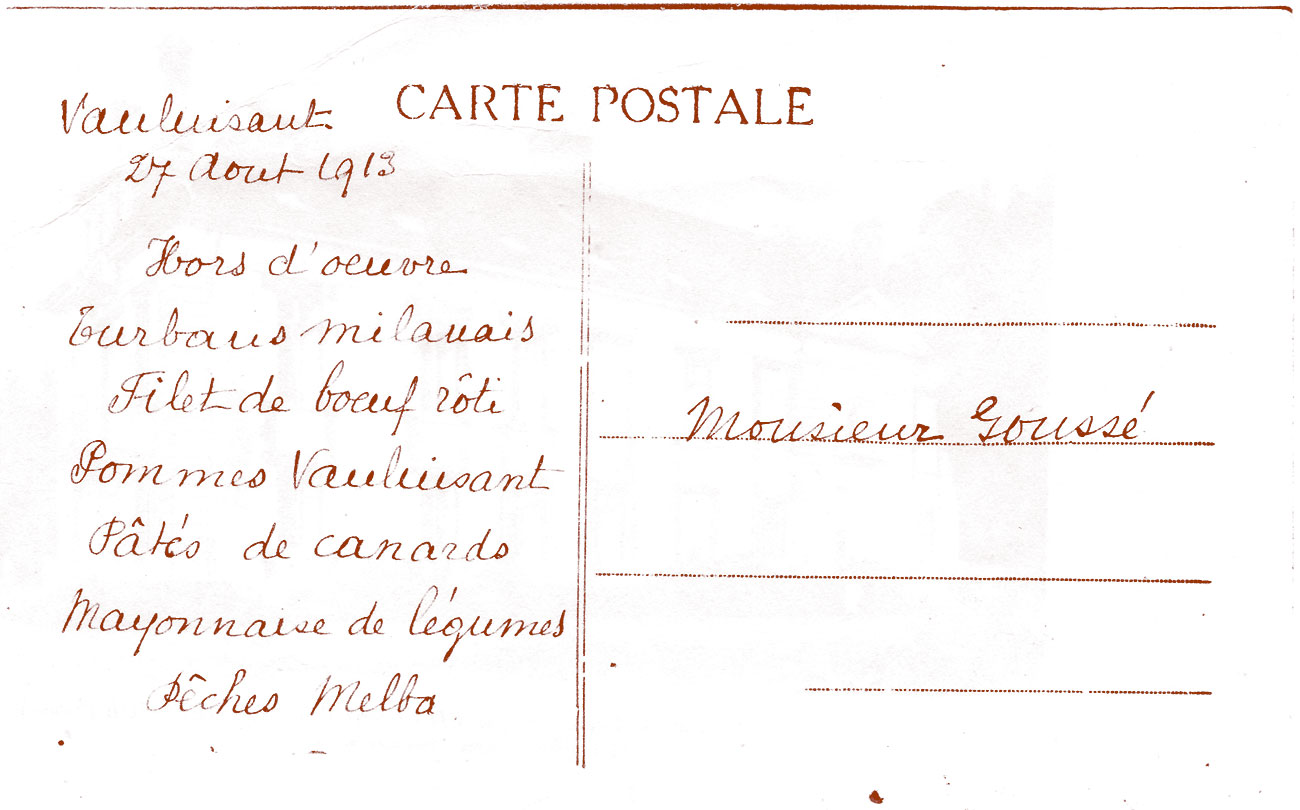 CARTE POSTALE
Vauluisant
27 Aout 1913
Hors d'oeuvre
Turbans milanais
Filet de boeuf rôti
Pommes Vauluisant
Pâtés de canards
Mayonnaise de légumes
Pêches Melba
Monsieur Goussé